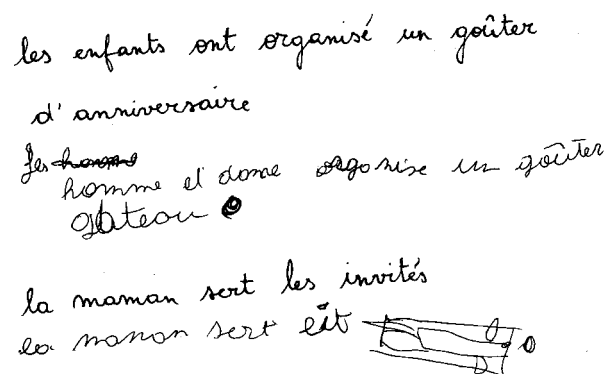 les enfants ont organisé un goûter
d'anniversaire
homme et dome orgonise un goûter
gâteau
la maman sert les invités
la manon sert